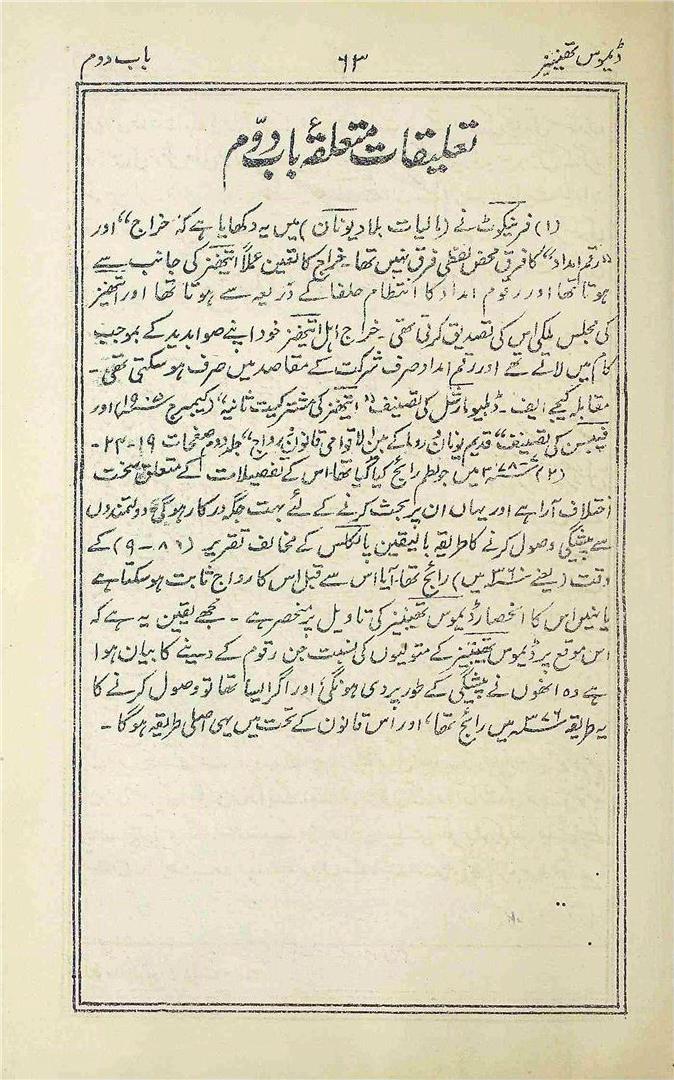 ڈیموس تھینیز ۶۳ باب دوم
تعلیقات متعلقۂ باب دوّم
(۱) فرینکوٹ نے (مالیات بلاد یونان) میں یہ دکھایا ہے کہ خراج" اور
"رقم امداد" کا فرق محض لفظی فرق نہیں تھا۔ خراج کا تعین عملاً ایتھنز کی جانب سے
ہوتا تھا اور رقوم امداد کا انتظام حلفا کے ذریعہ سے ہوتا تھا اور ایتھنز
کی مجلس ملکی اس کی تصدیق کرتی تھی۔ خراج اہل ایتھنز خود اپنے صوابدید کے بموجب
کام میں لاتے تھے اور رقم امداد صرف شرکت کے مقاصد میں صرف ہو سکتی تھی۔
مقابلہ کیجے الف۔ ڈبلیو مارشل کی تصنیف "ایتھنز کی مشترکیت ثانیہ" (کیمبرج ۱۹۰۵ء) اور
فلپسن کی تصنیف "قدیم یونان و روما کے بین الاقوامی قانون و رواج" جلد دوم صفحات ۱۹۔۲۴۔
(۲) ۳۷۸-۷ میں جو طریقہ رائج کیا گیا تھا، اس کے تفصیلات کے متعلق سخت
اختلاف آرا ہے اور یہاں ان پر بحث کرنے کے لئے بہت جگہ درکار ہوگی۔ دولتمندوں
سے پیشگی وصول کرنے کا طریقہ بالیقین پالکلس کے مخالف تقریر (۸، ۹) کے
وقت (یعنے ۳۶۰ میں) رائج تھا، آیا اس سے قبل اس کا رواج ثابت ہو سکتا ہے
یا نہیں اس کا انحصار ڈیموس تھینیز کی تاویل پر منحصر ہے۔ مجھے یقین یہ ہے کہ
اس موقع پر ڈیموس تھینیز کے متولیوں کی نسبت جن رقوم کے دینے کا بیان ہوا
ہے وہ انھوں نے پیشگی کے طور پر دی ہونگی، اور اگر ایسا تھا تو وصول کرنے کا
یہ طریقہ ۳۷۶ میں رائج تھا، اور اس قانون کے تحت میں یہی اصلی طریقہ ہوگا۔